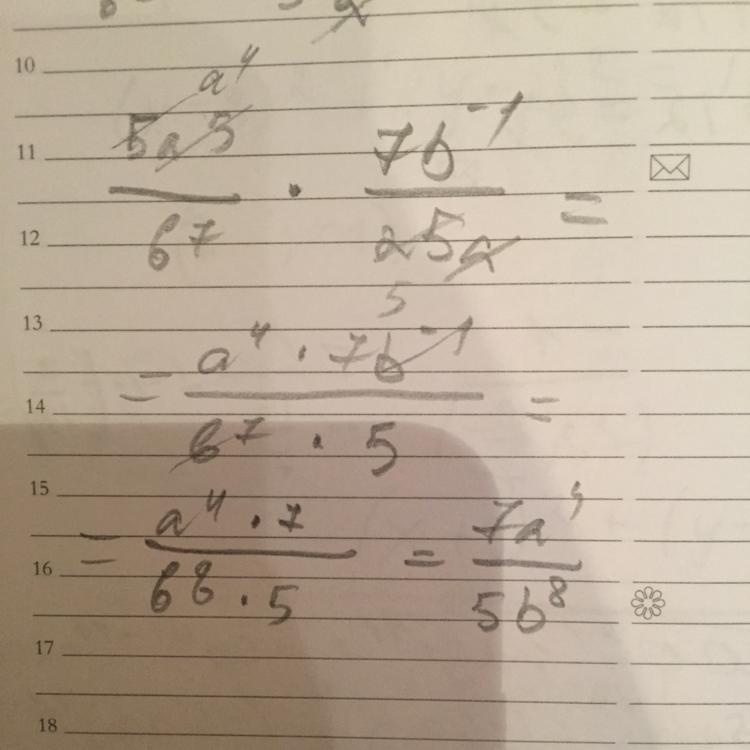 10
a⁴
11
5a5/b⁷ · 7b⁻¹/25a =
12
5
13
= a⁴ · 7b⁻¹/b⁷ · 5 =
14
15
= a⁴ · 7/b⁸ · 5 = 7a⁴/5b⁸
16
17
18